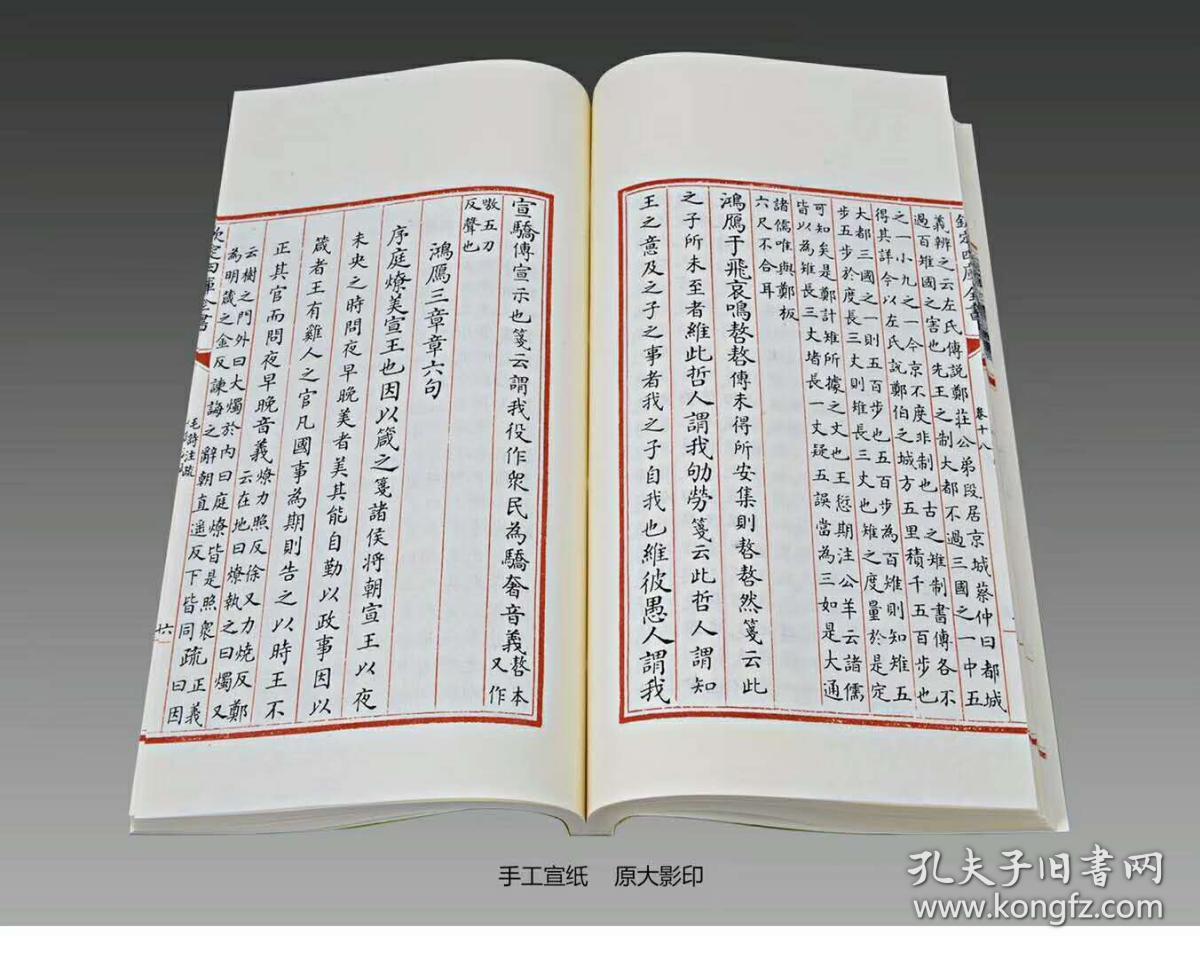 欽定四庫全書
卷十八
義辨之云左氏傳說鄭莊公弟段居京城蔡仲曰都城
過百雉國之害也先王之制大都不過三國之一中五
之一小九之一今京不度非制也古之雉制書傳各不
得其詳今以左氏說鄭伯之城方五里積千五百步也
大都三國之一則五百步也五百步為百雉則知雉五
步五步於度長三丈則雉長三丈也雉之度量於是定
可知矣是鄭計雉所據之文也王愆期注公羊云諸儒
皆以為雉長三丈堵長一丈疑五誤當為三如是大通
諸儒唯與鄭板
六尺不合耳
鴻鴈于飛哀鳴嗸嗸傳未得所安集則嗸嗸然箋云此
之子所未至者維此哲人謂我劬勞箋云此哲人謂知
王之意及之子之事者我之子自我也維彼愚人謂我
宣驕傳宣示也箋云謂我役作衆民為驕奢音義嗸本又作
嗷五刀
反聲也
鴻鴈三章章六句
序庭燎美宣王也因以箴之箋諸侯將朝宣王以夜
未央之時問夜早晚美者美其能自勤以政事因以
箴者王有雞人之官凡國事為期則告之以時王不
正其官而問夜早晚音義燎力照反徐又力燒反鄭
云在地曰燎執之曰燭又
云樹之門外曰大燭於內曰庭燎皆是照衆
為明箴之金反諫誨之辭朝直遙反下皆同疏正義曰因
欽定四庫全書
毛詩注疏
六
手工宣纸 原大影印
孔夫子旧书网
www.kongfz.com